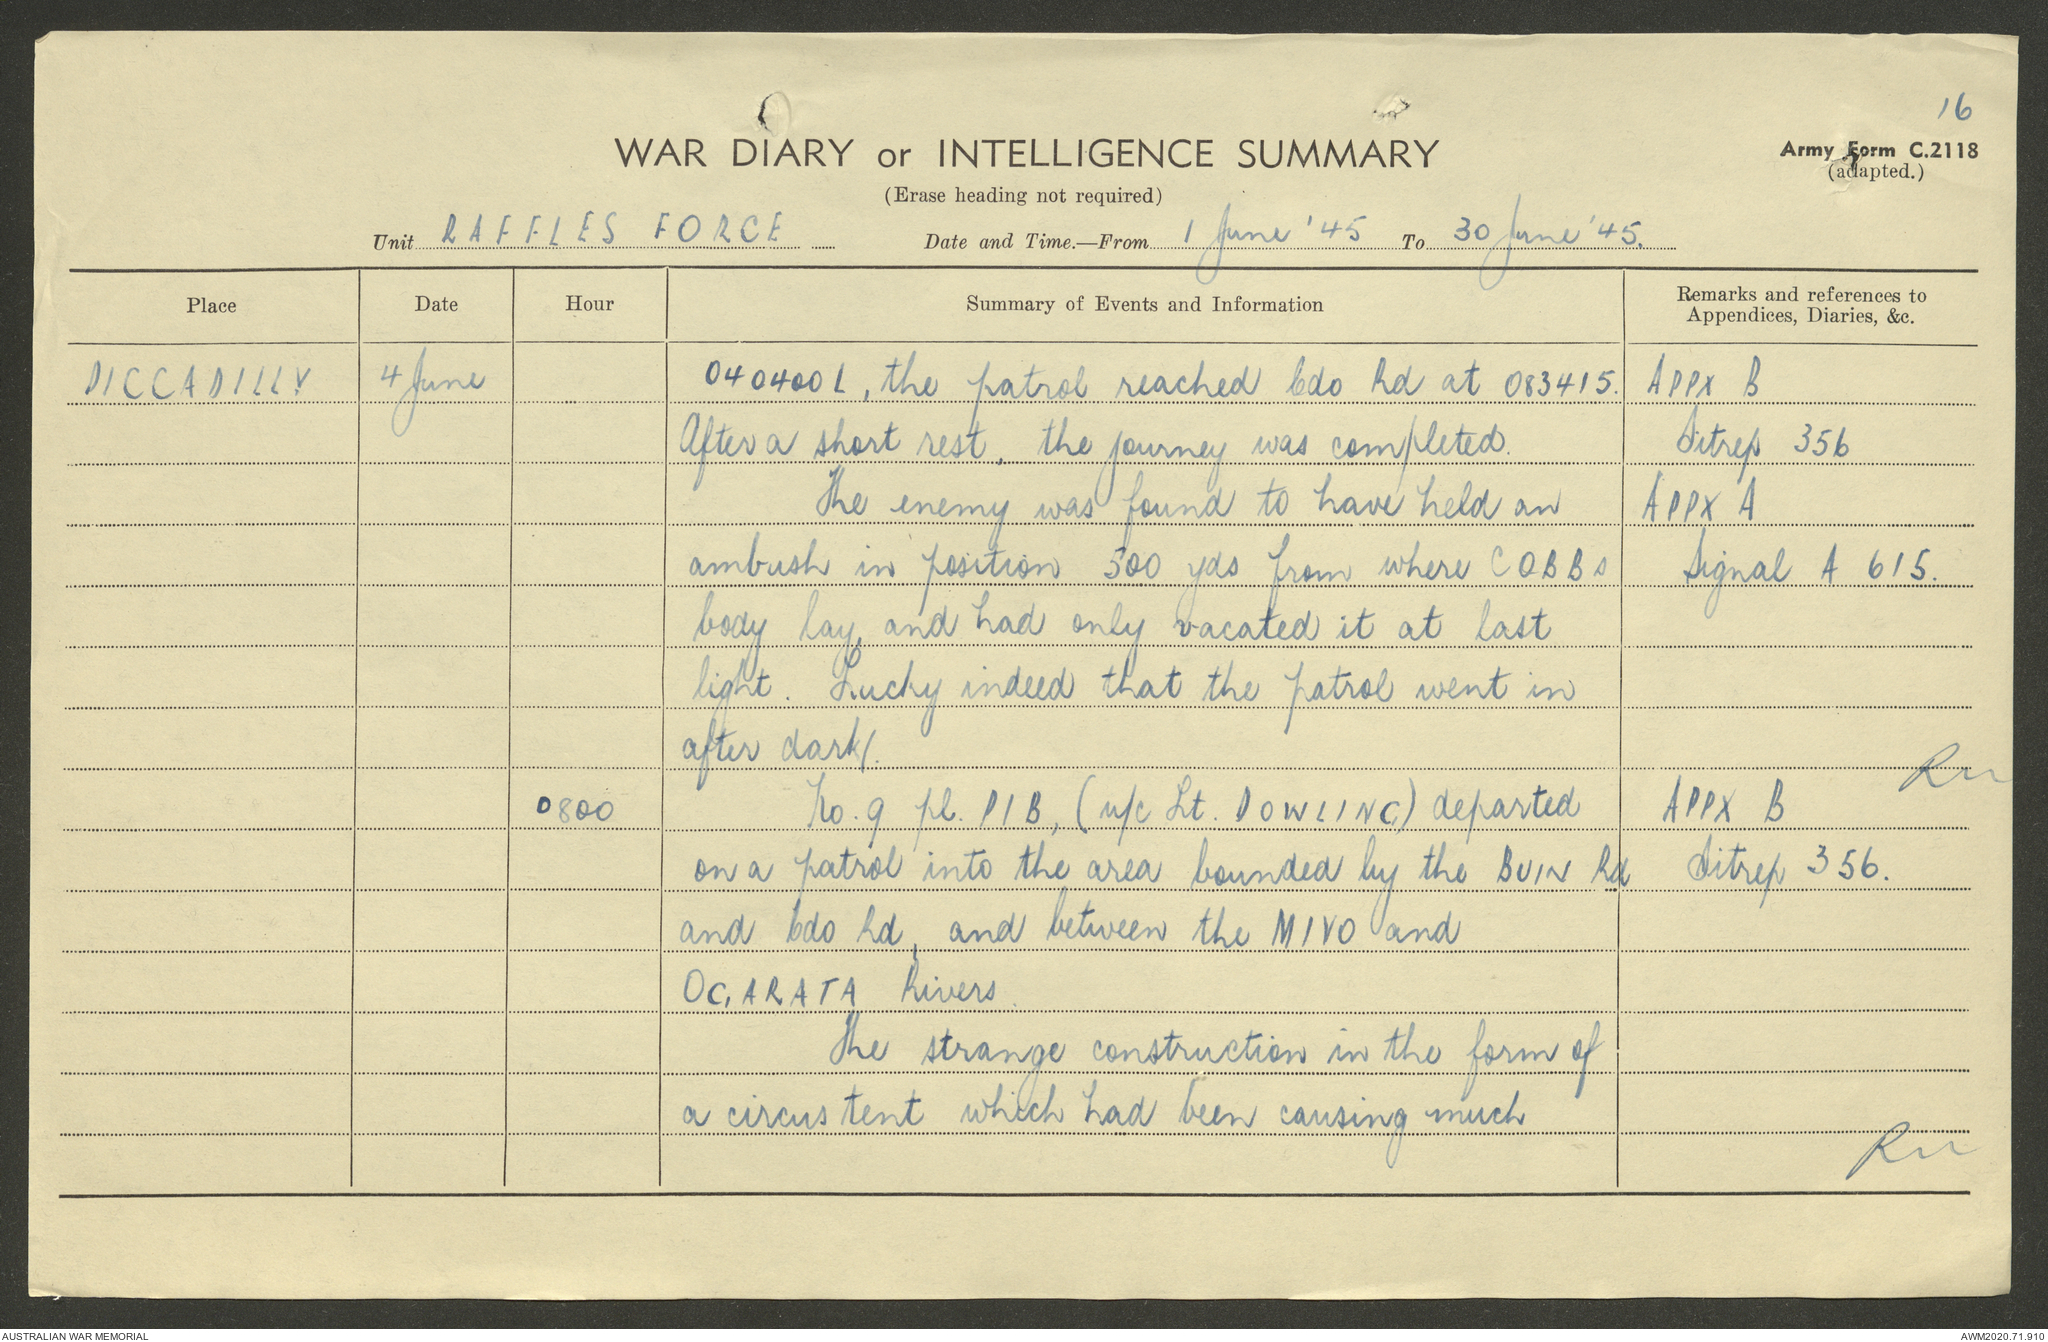 16
WAR DIARY or INTELLIGENCE SUMMARY
Army Form C.2118
(adapted.)
(Erase heading not required)
Unit RAFFLES FORCE Date and Time.—From 1 June '45 To 30 June '45.
Place Date Hour Summary of Events and Information Remarks and references to
Appendices, Diaries, &c.
PICCADILLY 4 June 040400L, the patrol reached Cdo Rd at 083415. APPX B
After a short rest, the journey was completed. Sitrep 356
The enemy was found to have held an APPX A
ambush in position 500 yds from where COBBs Signal A 615.
body lay, and had only vacated it at last
light. Lucky indeed that the patrol went in
after dark!.
0800 No. 9 pl. PIB, (u/c Lt. DOWLING) departed APPX B
on a patrol into the area bounded by the BUIN Rd Sitrep 356.
and Cdo Rd, and between the MIVO and
OGARATA Rivers.
The strange construction in the form of
a circus tent which had been causing much
AUSTRALIAN WAR MEMORIAL
AWM2020.71.910